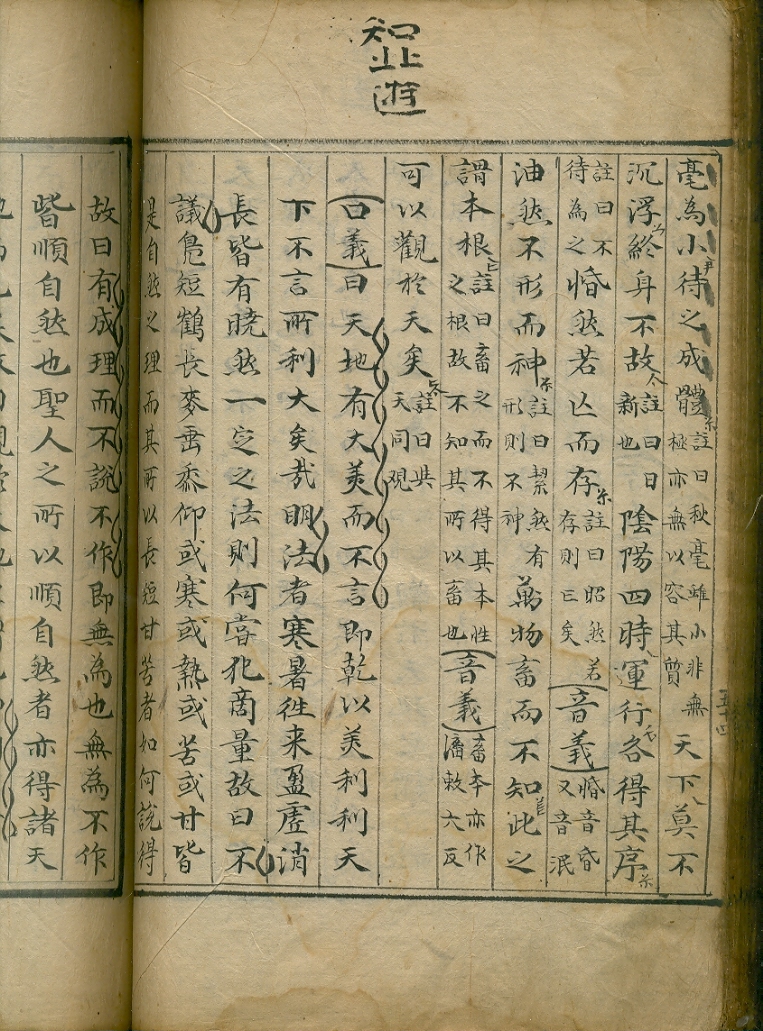 知北遊
毫為小待之成體註曰秋毫雖小非無極亦無以容其質天下莫不
沉浮終身不故註曰日新也陰陽四時運行各得其序
註曰不待為之惛然若亾而存註曰昭然若存則亡矣音義惛音昏又音泯
油然不形而神註曰絜然有形則不神萬物畜而不知此之
謂本根註曰畜之而不得其本性之根故不知其所以畜也音義畜本亦作滀敕六反
可以觀於天矣註曰與天同觀
口義曰天地有大美而不言即乾以美利利天
下不言所利大矣哉明法者寒暑徃来盈虗消
長皆有曉然一定之法則何嘗犯商量故曰不
議鳬短鶴長麥垂黍仰或寒或熱或苦或甘皆
是自然之理而其所以長短甘苦者如何說得
故曰有成理而不說不作即無為也無為不作
皆順自然也聖人之所以順自然者亦得諸天